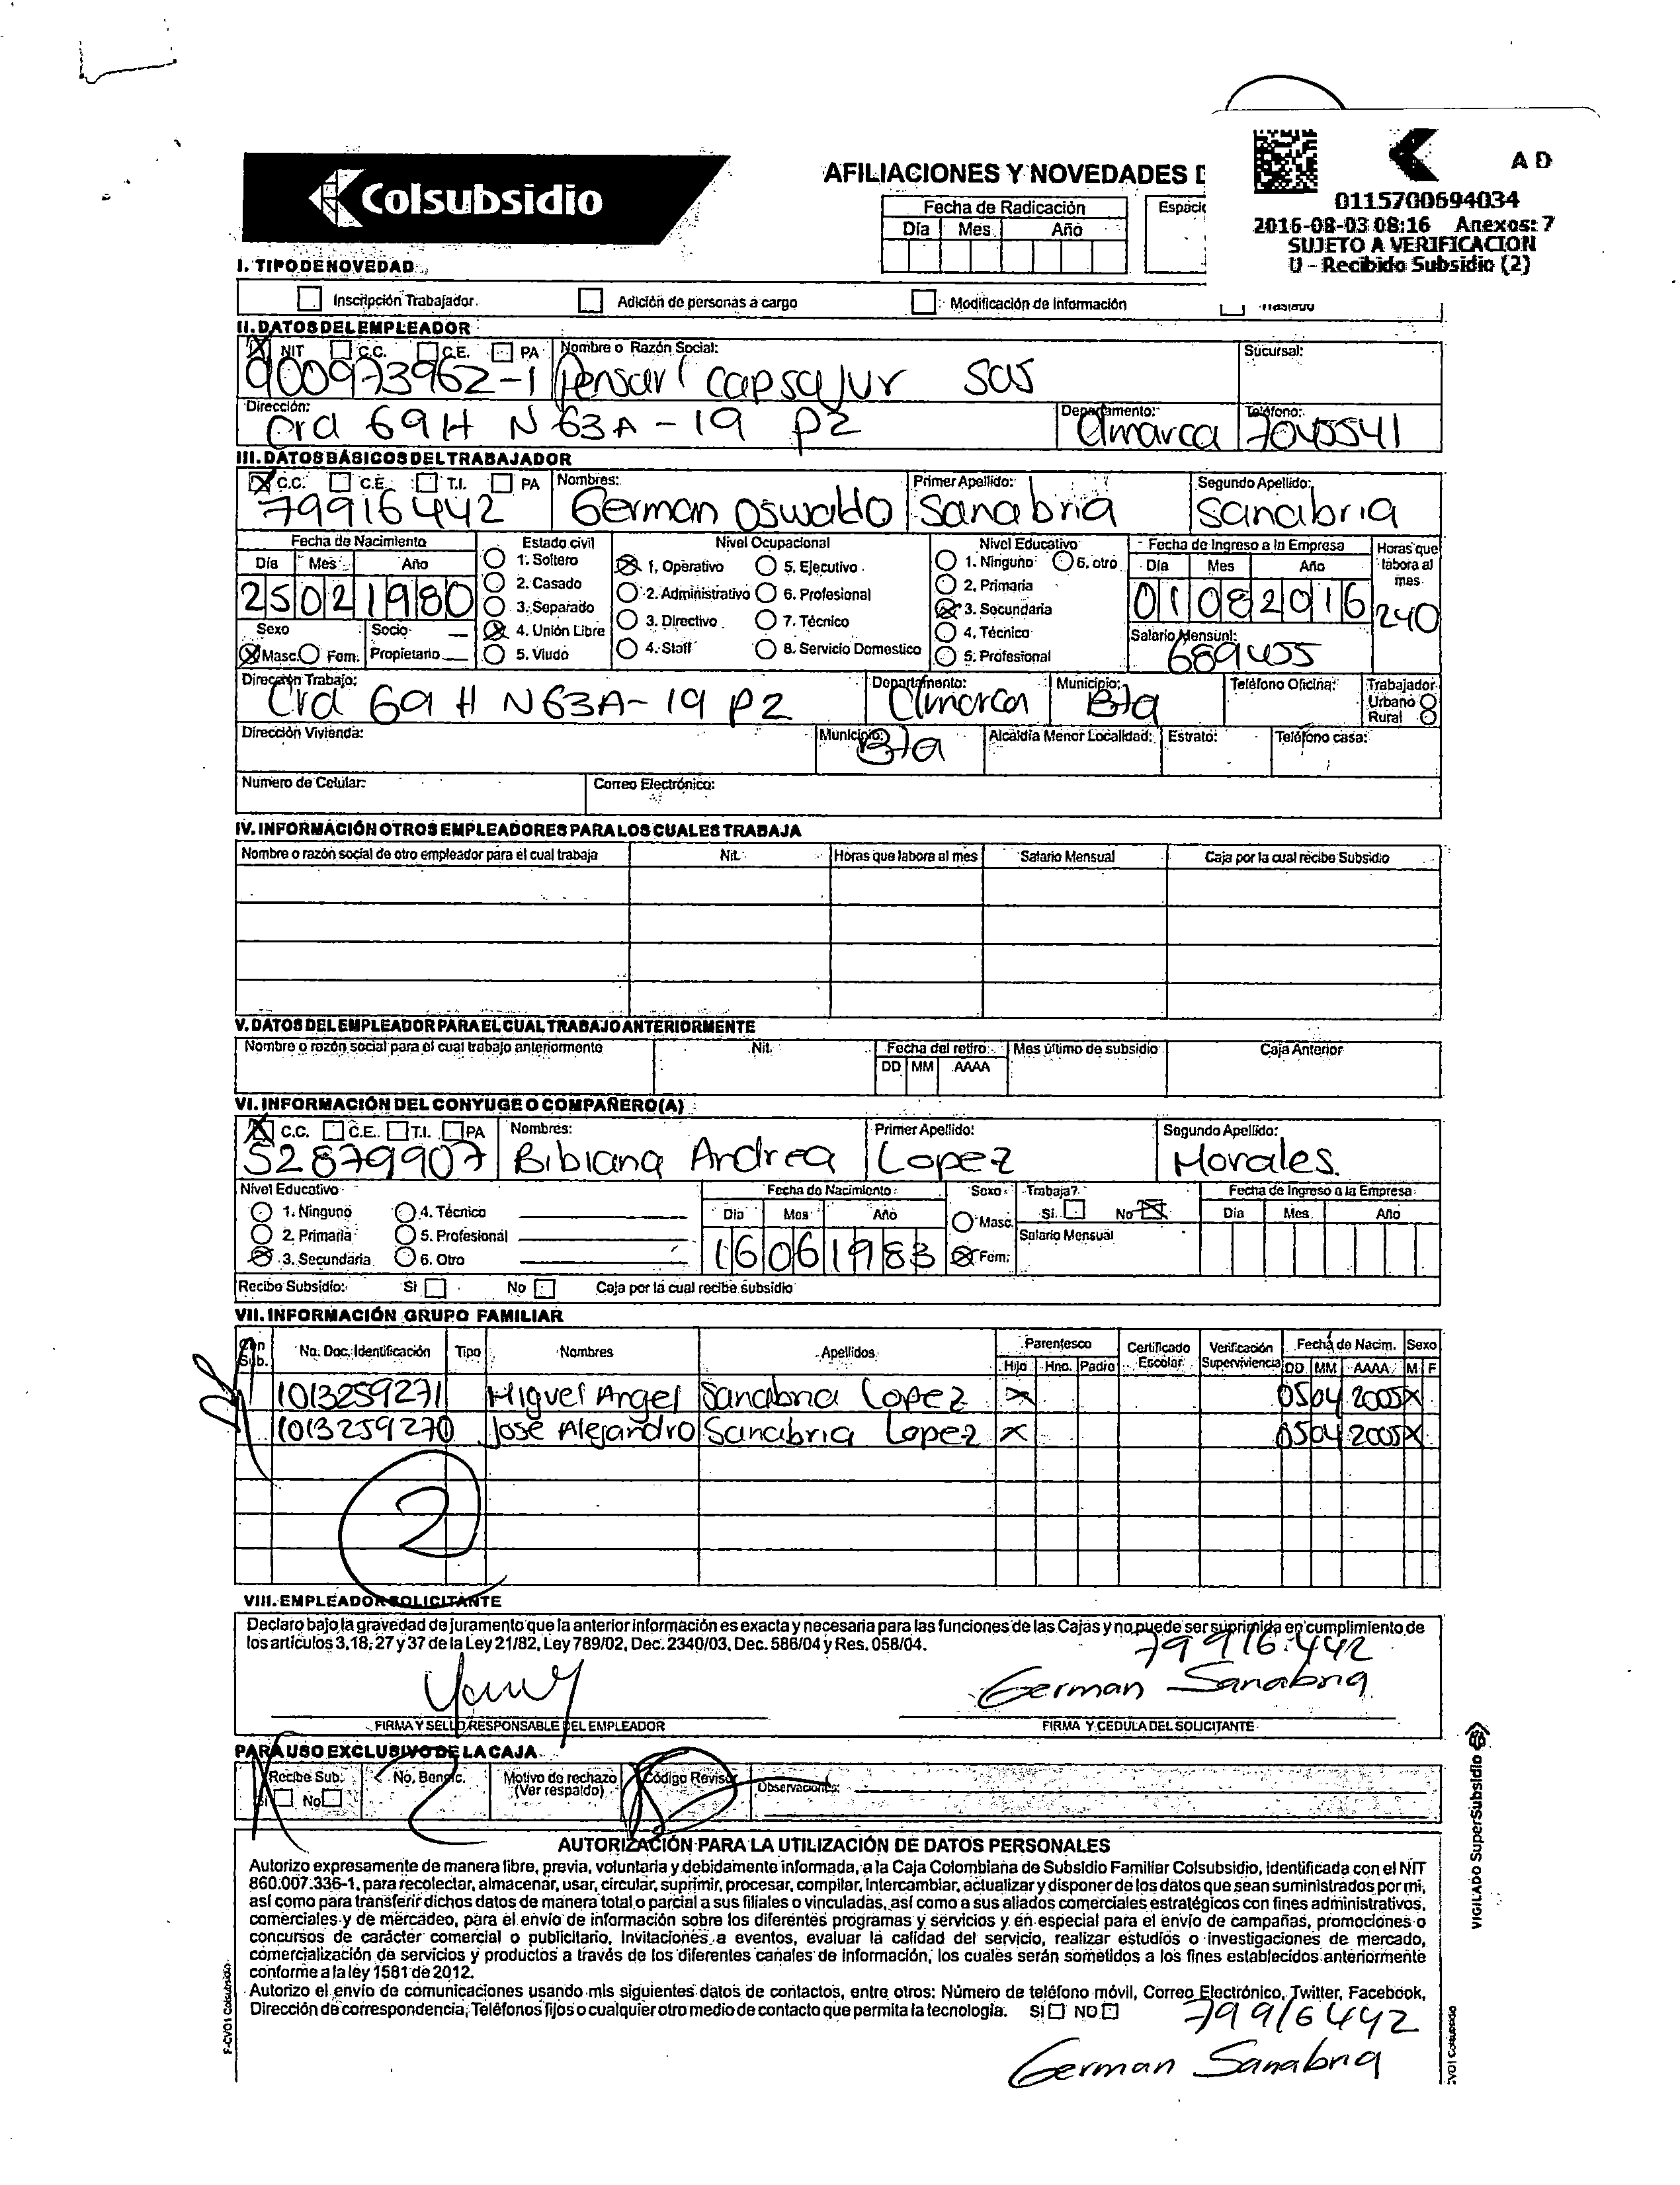 Colsubsidio
AFILIACIONES Y NOVEDADES D
Fecha de Radicación
Día Mes Año
Espacio
A D
0115700694034
2016-08-03 08:16 Anexos: 7
SUJETO A VERIFICACION
U - Recibido Subsidio (2)
I. TIPO DE NOVEDAD
Inscripción Trabajador Adición de personas a cargo Modificación de Información Traslado
II. DATOS DEL EMPLEADOR
X NIT C.C. C.E. PA Nombre o Razón Social: Sucursal:
900973962-1 Pensar capsajur SaS
Dirección: Departamento: Teléfono:
Crd 69H N 63A-19 P2 C/marca 7045541
III. DATOS BÁSICOS DEL TRABAJADOR
X C.C. C.E. T.I. PA Nombres: Primer Apellido: Segundo Apellido:
79916442 German Oswaldo Sanabria Sanabria
Fecha de Nacimiento Estado civil Nivel Ocupacional Nivel Educativo Fecha de Ingreso a la Empresa Horas que labora al mes
Día Mes Año 1. Soltero X 1. Operativo 5. Ejecutivo 1. Ninguno 6. otro Día Mes Año
25 02 1980 2. Casado 2. Administrativo 6. Profesional 2. Primaria 01 08 2016 240
3. Separado 3. Directivo 7. Técnico X 3. Secundaria
Sexo Socio X 4. Unión Libre 4. Staff 8. Servicio Domestico 4. Técnico Salario Mensual:
X Masc. Fem. Propietario 5. Viudo 5. Profesional 689455
Dirección Trabajo: Departamento: Municipio: Teléfono Oficina: Trabajador
Crd 69 H N63A-19 P2 C/marca B/ta Urbano
Rural
Dirección Vivienda: Municipio: B/ta Alcaldía Menor Localidad: Estrato: Teléfono casa:
Numero de Celular: Correo Electrónico:
IV. INFORMACIÓN OTROS EMPLEADORES PARA LOS CUALES TRABAJA
Nombre o razón social de otro empleador para el cual trabaja Nit. Horas que labora al mes Salario Mensual Caja por la cual recibe Subsidio
V. DATOS DEL EMPLEADOR PARA EL CUAL TRABAJO ANTERIORMENTE
Nombre o razón social para el cual trabajo anteriormente Nit. Fecha del retiro Mes último de subsidio Caja Anterior
DD MM AAAA
VI. INFORMACIÓN DEL CONYUGE O COMPAÑERO(A)
X C.C. C.E. T.I. PA Nombres: Primer Apellido: Segundo Apellido:
52879907 Bibiana Andrea Lopez Morales.
Nivel Educativo Fecha de Nacimiento Sexo Trabaja? Fecha de Ingreso a la Empresa
1. Ninguno 4. Técnico Día Mes Año Masc. Si No X Día Mes Año
2. Primaria 5. Profesional 16 06 1983 Salario Mensual
X 3. Secundaria 6. Otro X Fem.
Recibe Subsidio: Si No Caja por la cual recibe subsidio
VII. INFORMACIÓN GRUPO FAMILIAR
Con Sub. No. Doc. Identificación Tipo Nombres Apellidos Parentesco Certificado Escolar Verificación Supervivencia Fecha de Nacim. Sexo
Hijo Hno. Padre DD MM AAAA M F
1013259271 Miguel Angel Sanabria Lopez X 05 04 2005 X
1013259270 José Alejandro Sanabria Lopez X 05 04 2005 X
2
VIII. EMPLEADOR SOLICITANTE
Declaro bajo la gravedad de juramento que la anterior información es exacta y necesaria para las funciones de las Cajas y no puede ser suprimida en cumplimiento de
los artículos 3,18, 27 y 37 de la Ley 21/82, Ley 789/02, Dec. 2340/03, Dec. 586/04 y Res. 058/04.
79916.442
German Sanabria
FIRMA Y SELLO RESPONSABLE DEL EMPLEADOR FIRMA Y CEDULA DEL SOLICITANTE
PARA USO EXCLUSIVO DE LA CAJA
Recibe Sub. No. Benefic. Motivo de rechazo Código Revisor Observaciones:
Si No 2 (Ver respaldo)
AUTORIZACIÓN PARA LA UTILIZACIÓN DE DATOS PERSONALES
Autorizo expresamente de manera libre, previa, voluntaria y debidamente informada, a la Caja Colombiana de Subsidio Familiar Colsubsidio, identificada con el NIT
860.007.336-1, para recolectar, almacenar, usar, circular, suprimir, procesar, compilar, intercambiar, actualizar y disponer de los datos que sean suministrados por mi,
así como para transferir dichos datos de manera total o parcial a sus filiales o vinculadas, así como a sus aliados comerciales estratégicos con fines administrativos,
comerciales y de mercadeo, para el envío de información sobre los diferentes programas y servicios y en especial para el envío de campañas, promociones o
concursos de carácter comercial o publicitario, invitaciones a eventos, evaluar la calidad del servicio, realizar estudios o investigaciones de mercado,
comercialización de servicios y productos a través de los diferentes canales de información, los cuales serán sometidos a los fines establecidos anteriormente
conforme a la ley 1581 de 2012.
Autorizo el envío de comunicaciones usando mis siguientes datos de contactos, entre otros: Número de teléfono móvil, Correo Electrónico, Twitter, Facebook,
Dirección de correspondencia, Teléfonos fijos o cualquier otro medio de contacto que permita la tecnología. SI NO
79916442
German Sanabria
VIGILADO SuperSubsidio
F-CV01 Colsubsidio
CV01 Colsubsidio